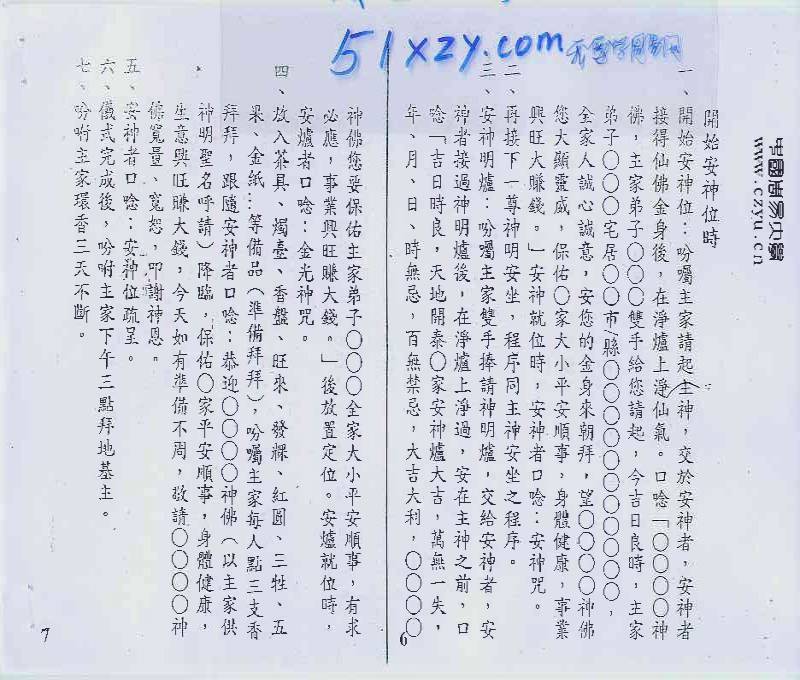 51xzy.com
www.czyu.cn
開始安神位時
一、開始安神位：吩囑主家請起主神，交於安神者，安神者
接得仙佛金身後，在淨爐上淨仙氣。口唸「○○○○神
佛，主家弟子○○○雙手給您請起，今吉日良時，主家
弟子○○○宅居○○市/縣○○○○○○○○○○，
全家人誠心誠意，安您的金身來朝拜，望○○○○神佛
您大顯靈威，保佑○家大小平安順事，身體健康，事業
興旺大賺錢。」安神就位時，安神者口唸：安神咒。
二、再接下一尊神明安坐，程序同主神安坐之程序。
三、安神明爐：吩囑主家雙手捧請神明爐，交給安神者，安
神者接過神明爐後，在淨爐上淨過，安在主神之前，口
唸「吉日時良，天地開泰○家安神爐大吉，萬無一失，
年、月、日、時無忌，百無禁忌，大吉大利，○○○○
6
神佛您要保佑主家弟子○○○全家大小平安順事，有求
必應，事業興旺賺大錢。」後放置定位。安爐就位時，
安爐者口唸：金光神咒。
四、放入茶具、燭臺、香盤、旺來、發粿、紅圓、三牲、五
果、金紙…等備品（準備拜拜），吩囑主家每人點三支香
拜拜，跟隨安神者口唸：恭迎○○○○神佛（以主家供
神明聖名呼請）降臨，保佑○家平安順事，身體健康，
生意興旺賺大錢，今天如有準備不周，敬請○○○○神
佛寬量、寬恕，叩謝神恩。
五、安神者口唸：安神位疏呈。
六、儀式完成後，吩咐主家下午三點拜地基主。
七、吩咐主家環香三天不斷。
7